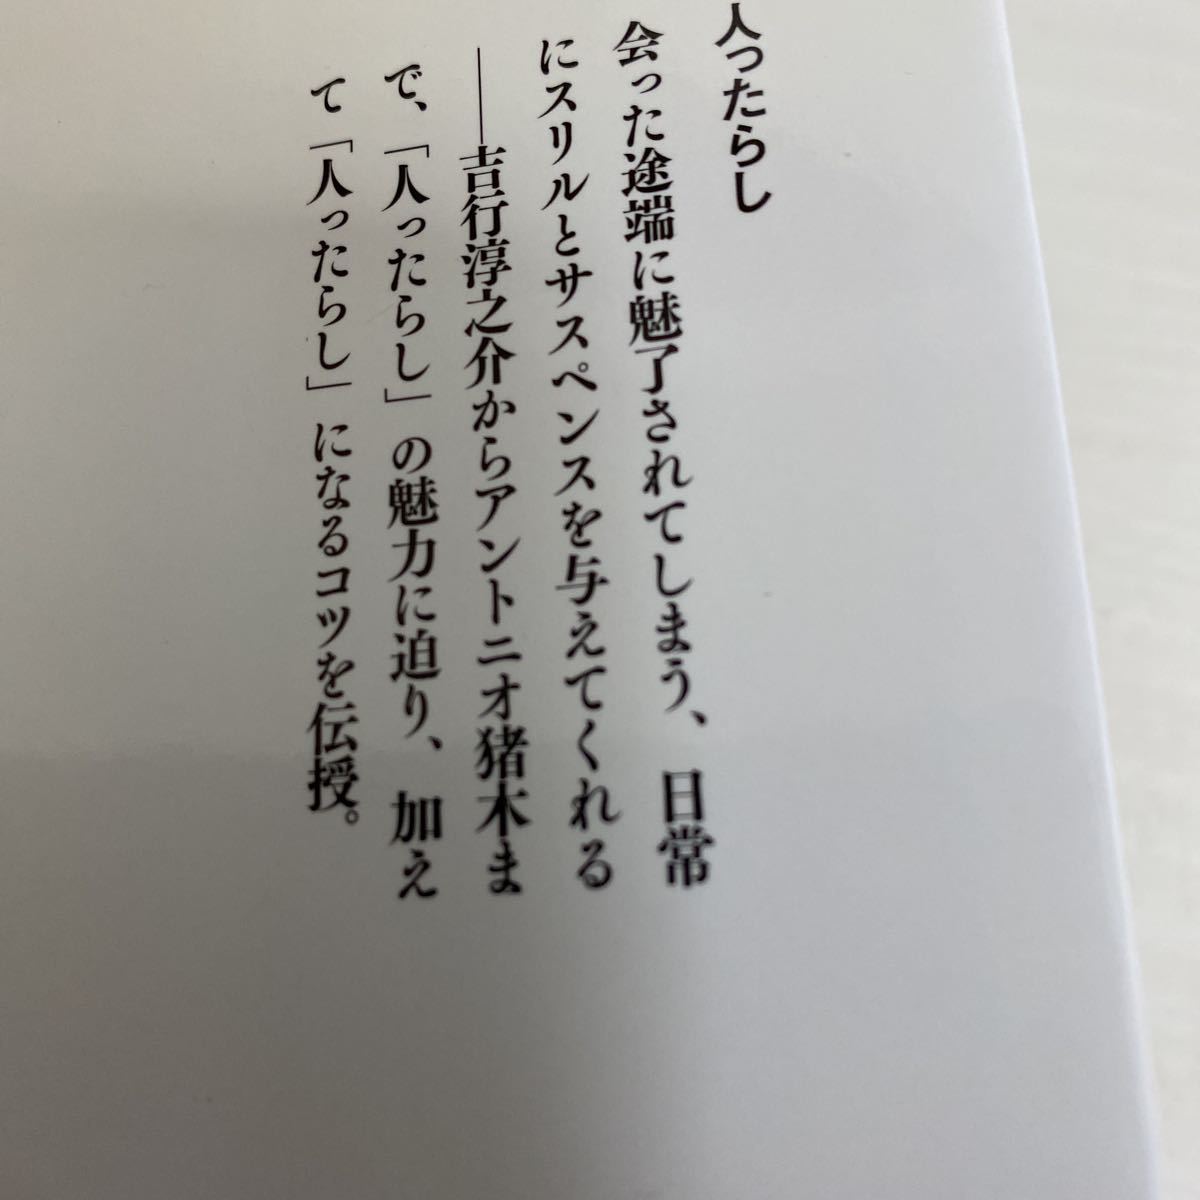 人ったらし
会った途端に魅了されてしまう、日常
にスリルとサスペンスを与えてくれる
――吉行淳之介からアントニオ猪木ま
で、「人ったらし」の魅力に迫り、加え
て「人ったらし」になるコツを伝授。